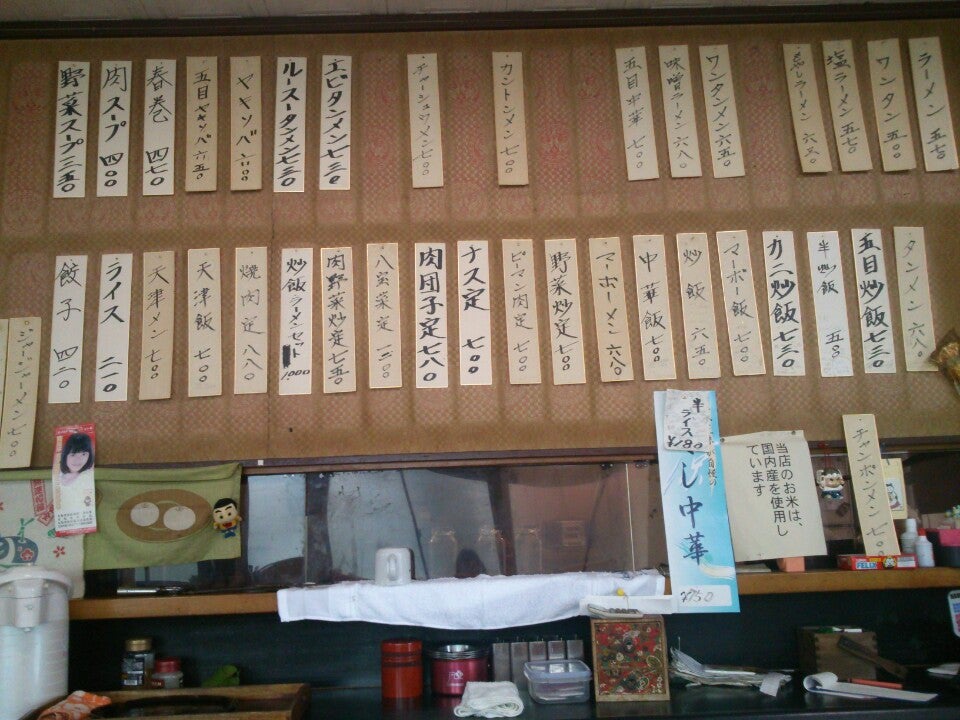 ラーメン 五七〇
ワンタン 五〇〇
塩ラーメン 五七〇
ワンタンメン 六五〇
味噌ラーメン 六八〇
五目中華 七〇〇
カントンメン 七〇〇
チャーシュウメン 七〇〇
エビタンメン 七三〇
ルースータンメン 七三〇
ヤキソバ 六〇〇
五目ヤキソバ 六五〇
春巻 四七〇
肉スープ 四〇〇
野菜スープ 三五〇
タンメン 六八〇
五目炒飯 七三〇
半炒飯 五〇〇
カニ炒飯 七三〇
マーボー飯 七〇〇
炒飯 六五〇
中華飯 七〇〇
マーボーメン 六八〇
野菜炒定 七〇〇
ピーマン肉定 七〇〇
ナス定 七〇〇
肉団子定 七八〇
八宝菜定
肉野菜炒定 七五〇
炒飯ラーメンセット 1,000
焼肉定 八八〇
天津飯 七〇〇
天津メン 七〇〇
ライス 二一〇
餃子 四二〇
ジャージャーメン 七〇〇
半ライス ¥180
し中華
¥750
当店のお米は、
国内産を使用し
ています
チャンポンメン 七〇〇
FELIX